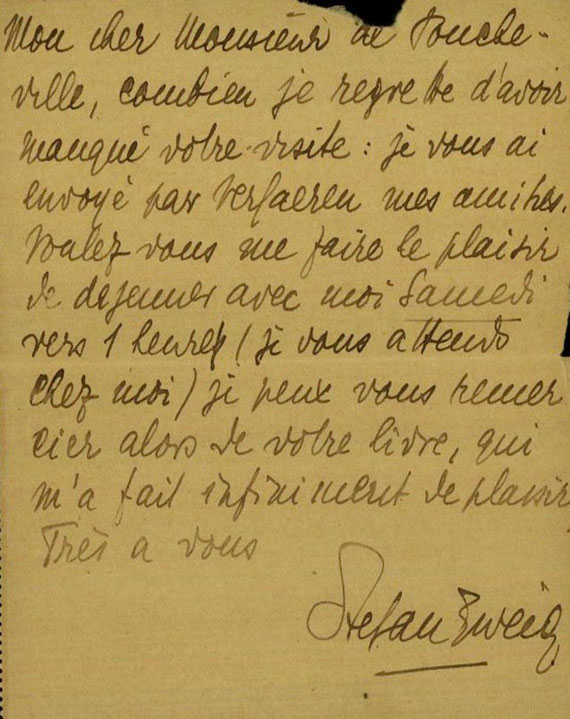 Mon cher Monsieur de Pouche-
ville, combien je regrette d'avoir
manqué votre visite : je vous ai
envoyé par Verhaeren mes amities.
Voulez vous me faire le plaisir
de dejeuner avec moi Samedi
vers 1 heures (je vous attends
chez moi) je peux vous remer
cier alors de votre livre, qui
m'a fait infiniment de plaisir
Très a vous
Stefan Zweig